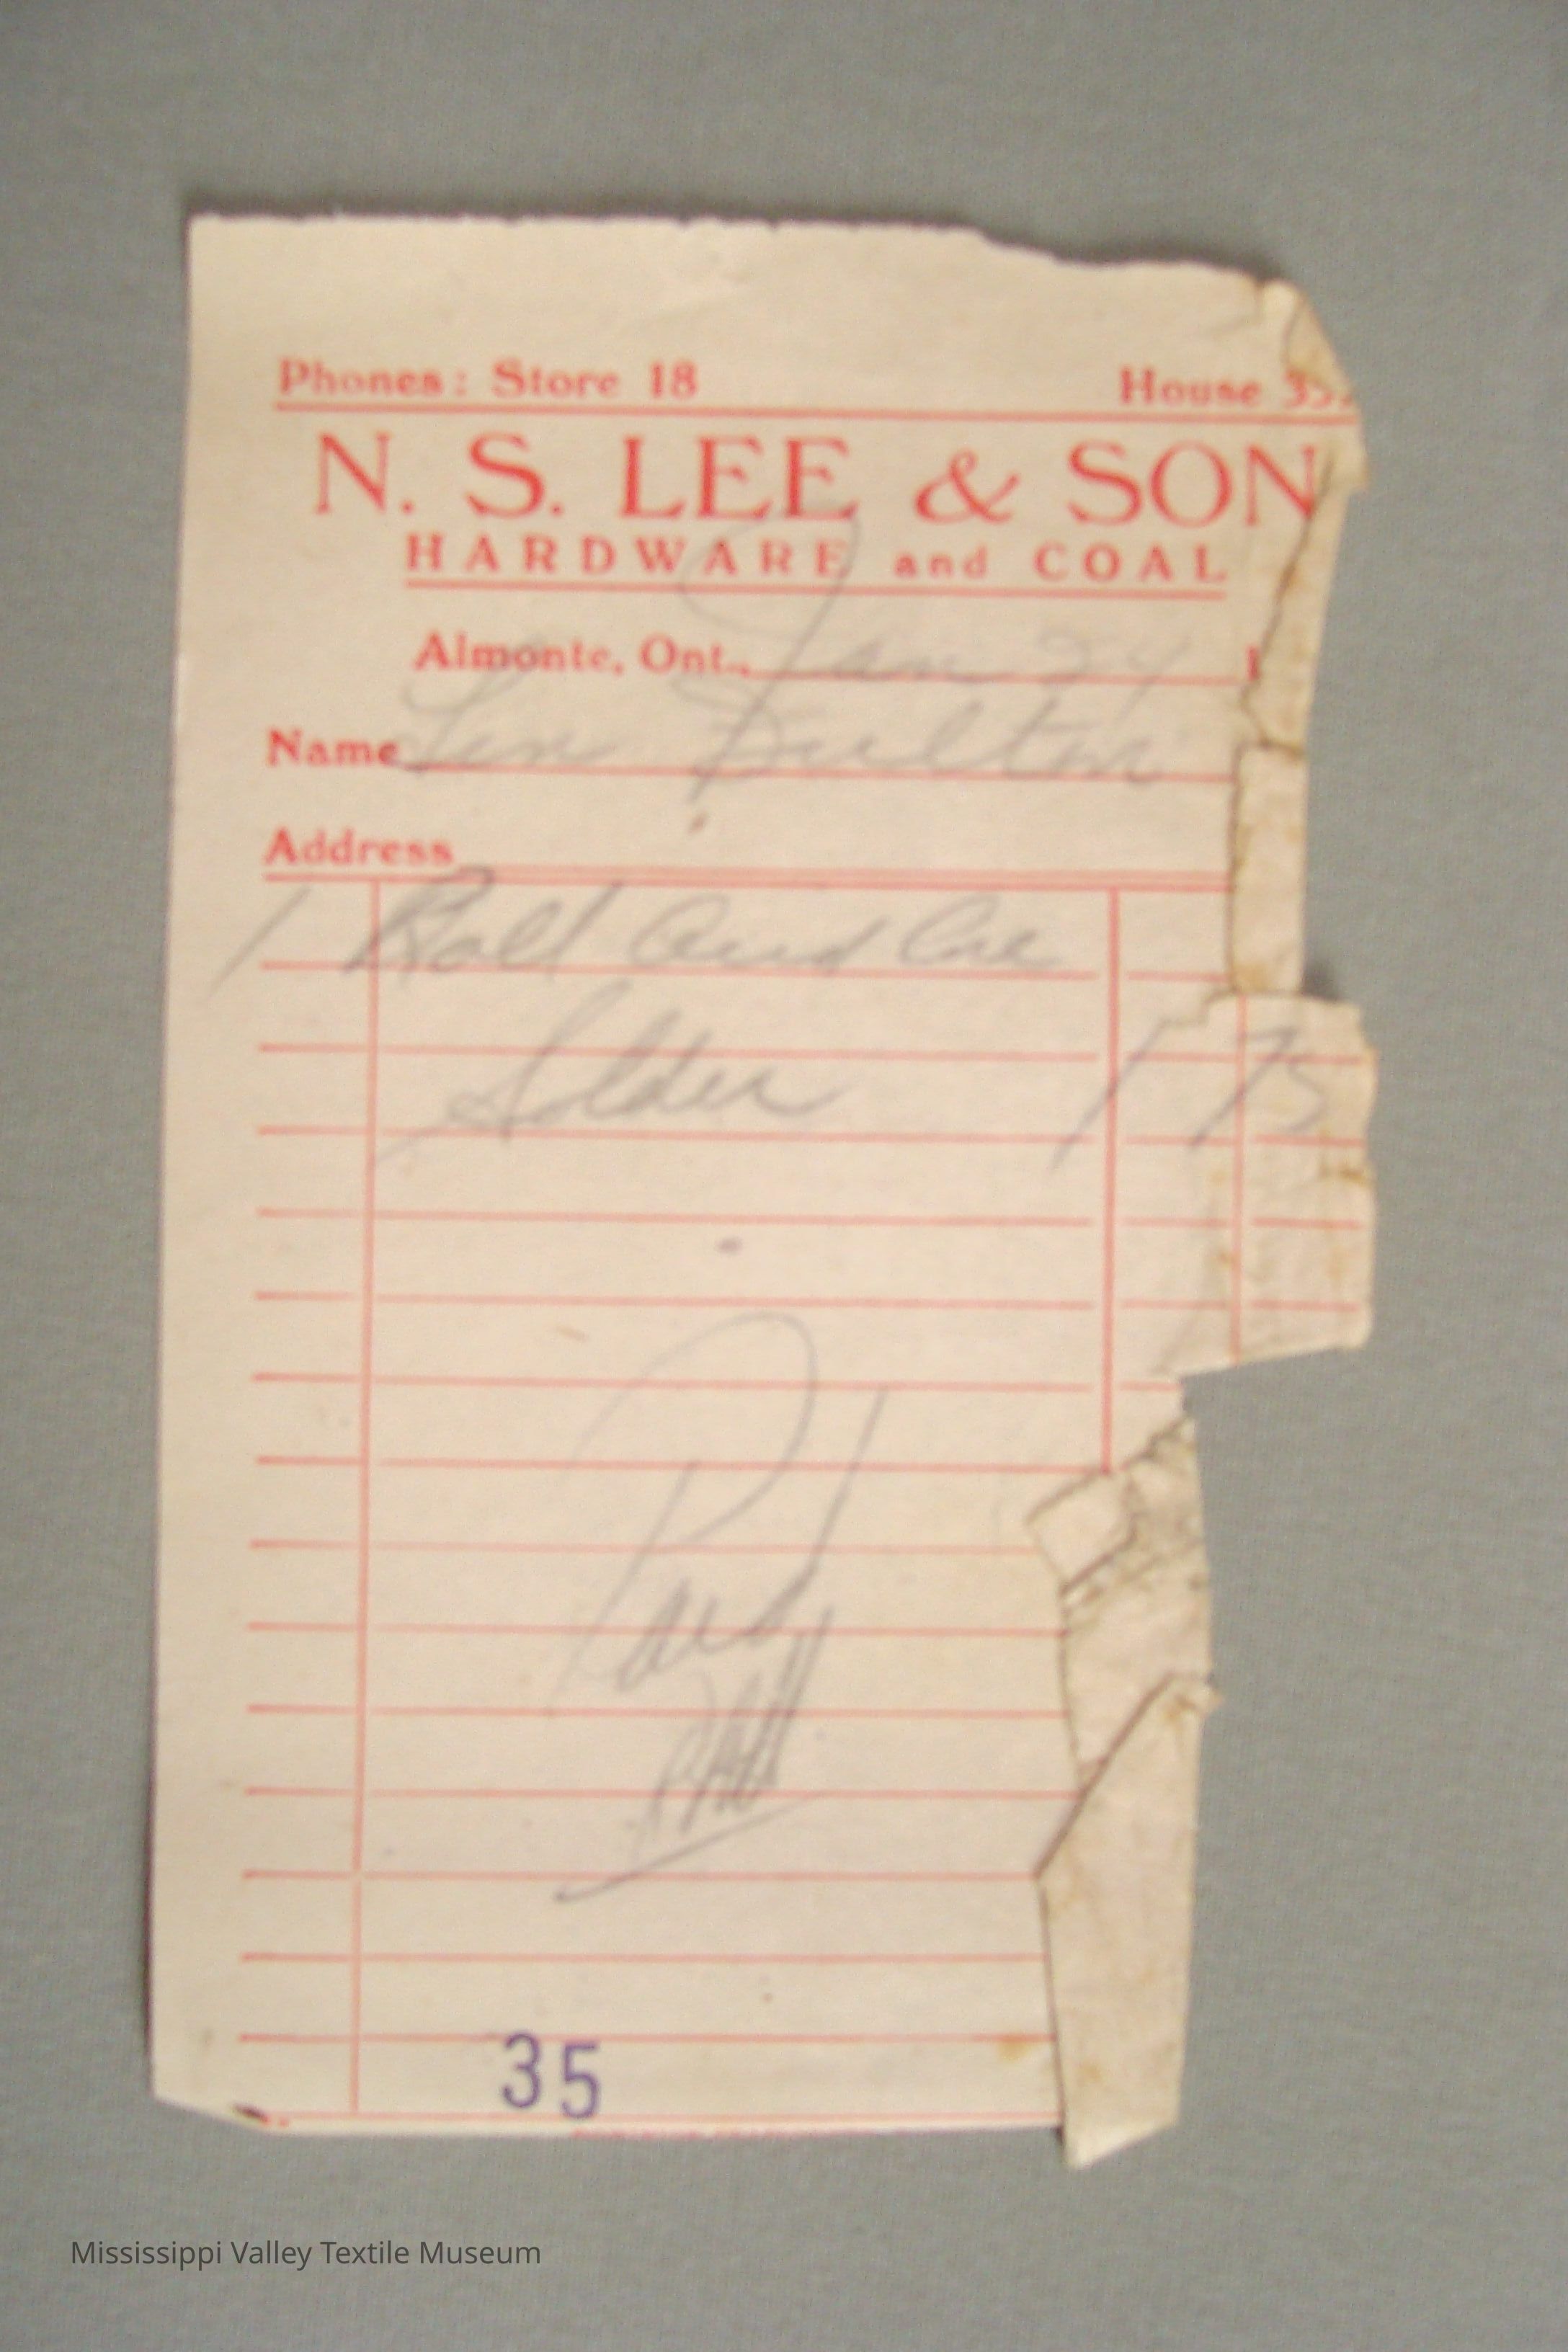 Phones: Store 18 House 35
N. S. LEE & SON
HARDWARE and COAL
Almonte, Ont., Jan 24 1
Name Len Fulton
Address
1 Roll Acid Core
Solder 1 75
Paid
35
Mississippi Valley Textile Museum